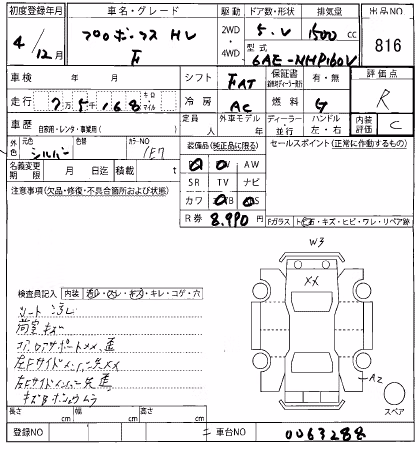 初度登録年月 車名・グレード 駆動 ドア数・形状 排気量 出品NO
4/12月 プロボックス HV F 2WD・4WD 5.V 1500cc 816
型式 6AE-NHP160V
車検 年 月 シフト FAT 保証書 有・無 評価点 R
走行 7万5千168 キロ マイル 冷房 AC 燃料 G
車歴 自家用・レンタ・事業用( ) 定員 人 外車モデル 年 ディーラー・並行 ハンドル 左・右 内装評価 C
外色 元色 シルバー 色替 カラーNO 1E7
装備品(純正品に限る) セールスポイント(正常に作動するもの)
名義変更期限 月 日迄 積載 t
AW
SR TV ナビ
カワ
注意事項(欠品・修復・不具合箇所および状態)
R券 8,990円
Fガラス
キズ・ヒビ・ワレ・リペア跡
W3
XX
検査員記入 内装
キレ・コゲ・穴
シート
荷室キズ
左Fサイドメンバー先XX
A2
スペア
長さ cm 幅 cm 高さ cm
登録NO 車台NO 0063288